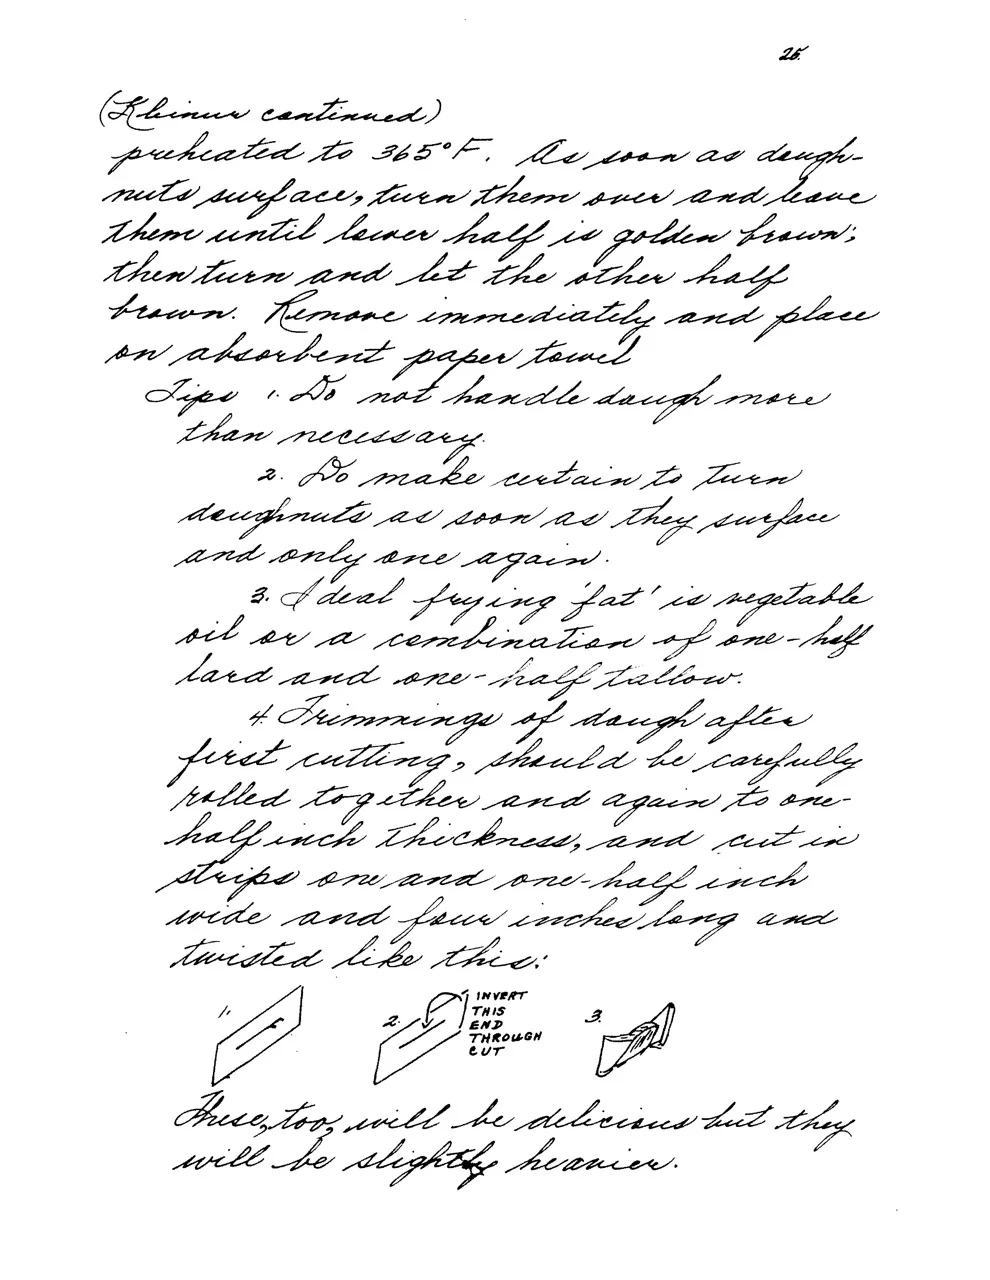 25.
(Kleinur continued)
preheated to 365°F. As soon as dough-
nuts surface, turn them over and leave
them until lower half is golden brown;
then turn and let the other half
brown. Remove immediately and place
on absorbent paper towel
Tips 1. Do not handle dough more
than necessary.
2. Do make certain to turn
doughnuts as soon as they surface
and only one again.
3. Ideal frying 'fat' is vegetable
oil or a combination of one-half
lard and one-half tallow.
4. Trimmings of dough after
first cutting, should be carefully
rolled together and again to one-
half inch thickness, and cut in
strips one and one-half inch
wide and four inches long and
twisted like this:
1.
2. INVERT
THIS
END
THROUGH
CUT
3.
These, too, will be delicious but they
will be slightly heavier.